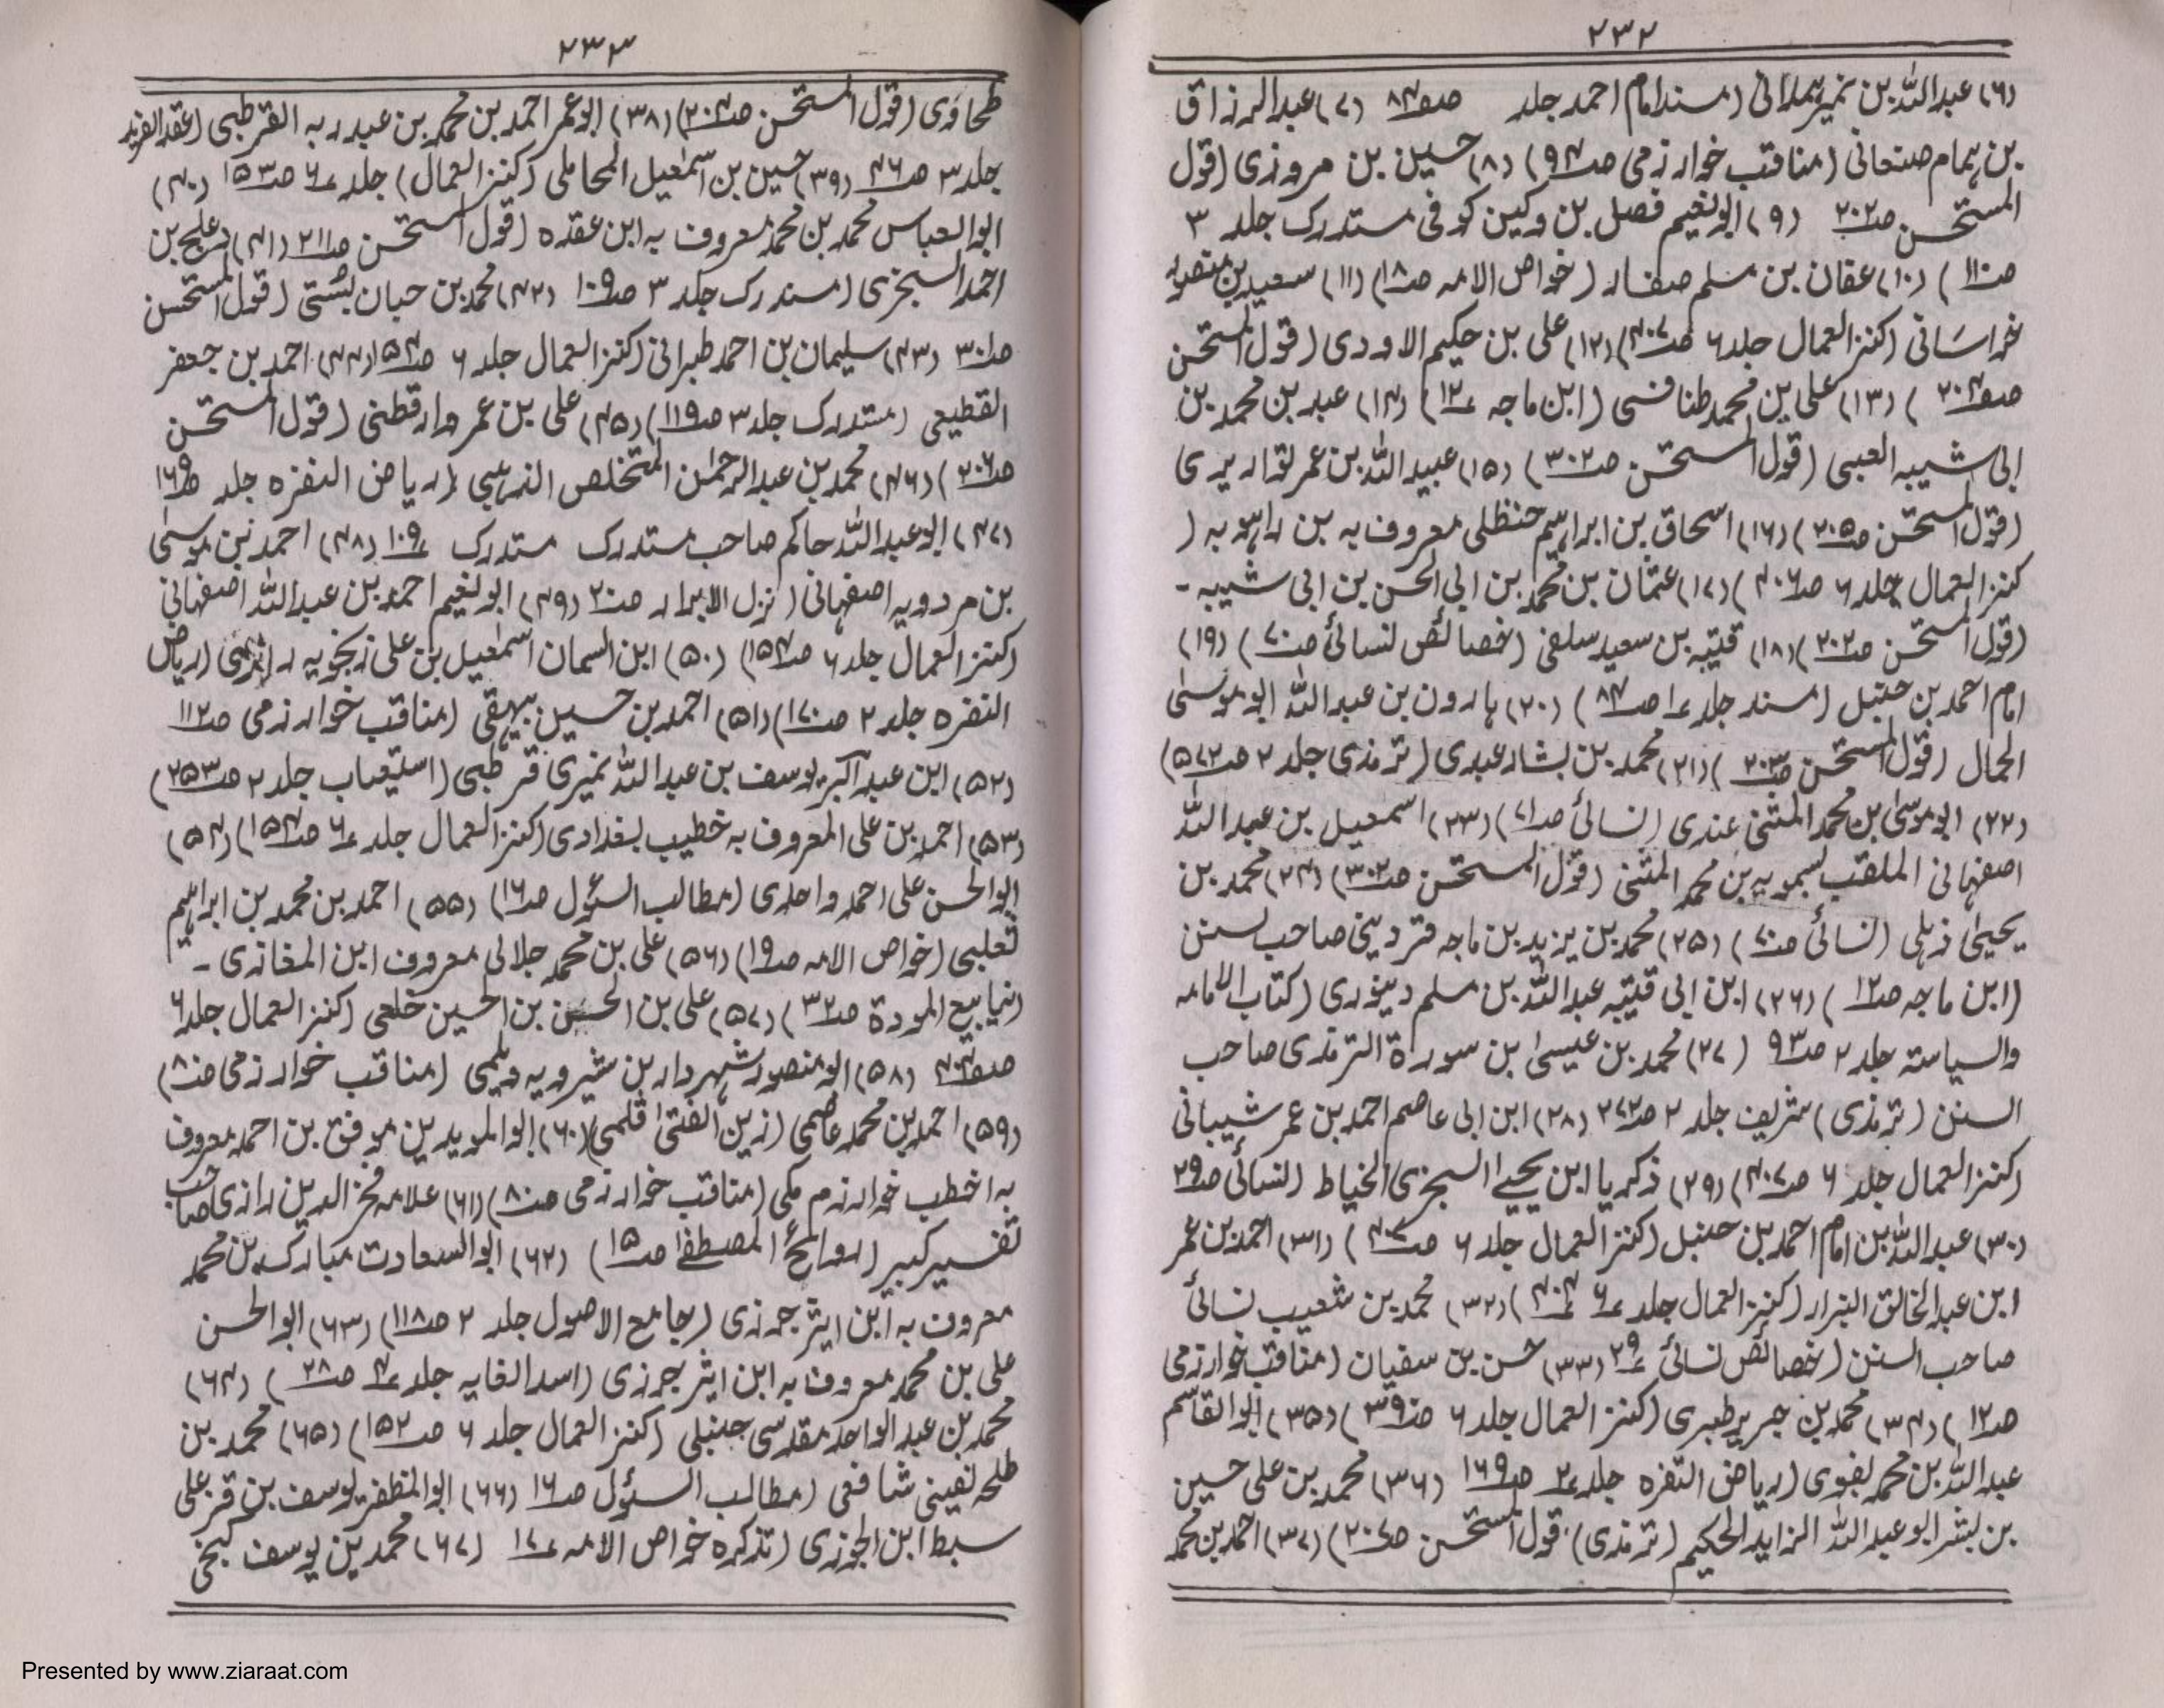 ۲۳۲
(۶) عبداللہ بن نمیر ہمدانی (مسند امام احمد جلد صفہ ۸۴ (۷) عبدالرزاق
بن ہمام صنعانی (مناقب خوارزمی صہ ۹۴) (۸) حسین بن مروزی (قول
المستحسن صہ ۲۰۲ (۹) ابو نعیم فضل بن وکین کوفی مستدرک جلد ۳
صہ ۱۱۰) (۱۰) عفان بن مسلم صفار (خواص الامہ صہ ۱۸) (۱۱) سعید بن منصور
خراسانی (کنز العمال جلد ۶ صہ ۴۰۷) (۱۲) علی بن حکیم الاودی (قول المستحسن
صفہ ۲۰۴) (۱۳) علی بن محمد طنافسی (ابن ماجہ ؁ ۱۲) (۱۴) عبد بن محمد بن
ابی شیبہ العبسی (قول المستحسن صہ ۳۰۲) (۱۵) عبید اللہ بن عمر لقواریری
(قول المستحسن صہ ۲۰۵) (۱۶) اسحاق بن ابراہیم حنظلی معروف بہ بن راہویہ (
کنز العمال جلد ۶ صہ ۴۰۶) (۱۷) عثمان بن محمد بن ابی الحسن بن ابی شیبہ ۔
(قول المستحسن صہ ۲۰۲) (۱۸) قتیبہ بن سعید سلفی (خصائص لنسائی صہ ۷۰) (۱۹)
امام احمد بن حنبل (مسند جلد ۱ صہ ۸۴) (۲۰) ہارون بن عبداللہ ابو موسیٰ
الحمال (قول المستحسن صہ ۲۰۳) (۲۱) محمد بن بشار عبدی (ترمذی جلد ۲ صہ ۵۷۲)
(۲۲) ابو موسیٰ بن محمد المثنیٰ عندی (نسائی صہ ۷۱) (۲۳) اسمعیل بن عبداللہ
اصفہانی الملقب بسمویہ بن محمد المثنیٰ (قول المستحسن صہ ۳۰۲) (۲۴) محمد بن
یحییٰ ذہلی (نسائی صہ ۷۰) (۲۵) محمد بن یزید بن ماجہ قزدینی صاحب سنن
(ابن ماجہ صہ ۱۲) (۲۶) ابن ابی قتیبہ عبداللہ بن مسلم دینوری (کتاب الامامہ
والسیاستہ جلد ۲ صہ ۹۳ (۲۷) محمد بن عیسیٰ بن سورۃ الترمذی صاحب
السنن (ترمذی) شریف جلد ۲ صہ ۲۷۲ (۲۸) ابن ابی عاصم احمد بن عمر شیبانی
(کنز العمال جلد ۶ صہ ۴۰۷) (۲۹) ذکریا ابن یحییٰ السجزی الخیاط (لنسائی صہ ۲۹
(۳۰) عبداللہ بن امام احمد بن حنبل (کنز العمال جلد ۶ صہ ۴۰۷) (۳۱) احمد بن عمر
ابن عبدالخالق البزار (کنز العمال جلد ۶ ۴۰۴) (۳۲) محمد بن شعیب نسائی
صاحب السنن (خصائص نسائی ۲۹ (۳۳) حسن بن سفیان (مناقب خوارزمی
صہ ۱۲) (۳۴) محمد بن جریر طبری (کنز العمال جلد ۶ صہ ۳۹) (۳۵) ابو القاسم
عبداللہ بن محمد لبغوی (ریاض النفرہ جلد ۲ صہ ۱۶۹ (۳۶) محمد بن علی حسین
بن بشر ابو عبداللہ الزاہد الحکیم (ترمذی) قول المستحسن صہ ۲۰۷) (۳۷) احمد بن محمد
۲۳۳
طحاوی (قول المستحسن صہ ۲۰۴) (۳۸) ابو عمر احمد بن محمد بن عبد ربہ القرطبی (عقد الفرید
جلد ۳ صہ ۴۶ (۳۹) حسین بن اسمعیل المحاملی (کنز العمال) جلد ۶ صہ ۱۵۳ (۴۰)
ابو العباس محمد بن محمد معروف بہ ابن عقدہ (قول المستحسن صہ ۲۱۱ (۴۱) دعلج بن
احمد السجزی (مسندرک جلد ۳ صہ ۱۰۹ (۴۲) محمد بن حبان بستی (قول المستحسن
صہ ۳۰۱ (۴۳) سلیمان بن احمد طبرانی (کنز العمال جلد ۶ صہ ۱۵۴ (۴۴) احمد بن جعفر
القطیعی (مستدرک جلد ۳ صہ ۱۱۹) (۴۵) علی بن عمر وارقطنی (قول المستحسن
صہ ۲۰۶) (۴۶) محمد بن عبدالرحمٰن المتخلص الذہبی (ریاض النفرہ جلد صہ ۱۶۹
(۴۷) ابو عبداللہ حاکم صاحب مستدرک مستدرک ۱۰۹ (۴۸) احمد بن موسیٰ
بن مردویہ اصفہانی (نزل الابرار صہ ۲۰ (۴۹) ابو نعیم احمد بن عبداللہ اصفہانی
(کنز العمال جلد ۶ صہ ۱۵۴) (۵۰) ابن السمان اسمٰعیل بن علی زنجویہ (ریاض
النفرہ جلد ۲ صہ ۱۷۰) (۵۱) احمد بن حسین بیہقی (مناقب خوارزمی صہ ۱۱۲
(۵۲) ابن عبد البر یوسف بن عبداللہ نمیری قرطبی (استیعاب جلد ۲ صہ ۲۵۳)
(۵۳) احمد بن علی المعروف بہ خطیب بغدادی (کنز العمال جلد ۶ صہ ۱۵۴) (۵۴)
ابو الحسن علی احمد واحدی (مطالب السئول صہ ۱۶) (۵۵) احمد بن محمد بن ابراہیم
ثعلبی (خواص الامہ صہ ۱۹) (۵۶) علی بن محمد جلالی معروف ابن المغازی ۔
(نیابیع المودۃ صہ ۳۲) (۵۷) علی بن الحسن بن الحسین خلعی (کنز العمال جلد ۶
صفہ ۴۰۴ (۵۸) ابو منصور شہردار بن شیرویہ دیلمی (مناقب خوارزمی صہ ۸۰)
(۵۹) احمد بن محمد عاصمی (زین الفتیٰ قلمی) (۶۰) ابو الموید بن موفق بن احمد معروف
بہ اخطب خوارزم مکی (مناقب خوارزمی صہ ۸۰) (۶۱) علامہ فخر الدین رازی صاحب
تفسیر کبیر (روائح المصطفےٰ صہ ۱۵) (۶۲) ابو السعادت مبارک بن محمد
معروف بہ ابن اثیر جزری (جامع الاصول جلد ۲ صہ ۱۱۸) (۶۳) ابو الحسن
علی بن محمد معروف بہ ابن اثیر جزری (اسد الغابہ جلد ۴ صہ ۲۸) (۶۴)
محمد بن عبدالواحد مقدسی حنبلی (کنز العمال جلد ۶ صہ ۱۵۲) (۶۵) محمد بن
طلحہ نصینی شافعی (مطالب السئول صہ ۱۶ (۶۶) ابو المظفر یوسف بن قزعلی
سبط ابن الجوزی (تذکرہ خواص الامہ ۱۷ (۶۷) محمد بن یوسف گنجی
Presented by www.ziaraat.com